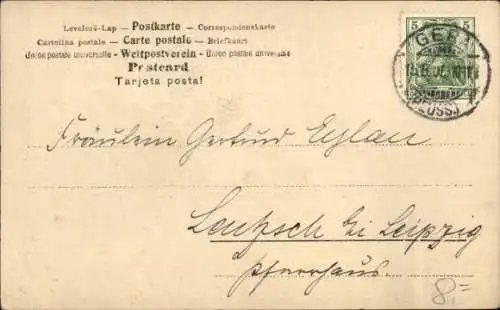 Levelező-Lap — Postkarte — Correspondenzkarte
Cartolina postale — Carte postale — Briefkaart
Union postale universelle — Weltpostverein — Union postale universelle
Postcard
Tarjeta postal
5 5
GERA
(REUSS)
Fräulein Gertrud Eylau
Leutzsch bei Leipzig
Pfarrhaus.
8,=